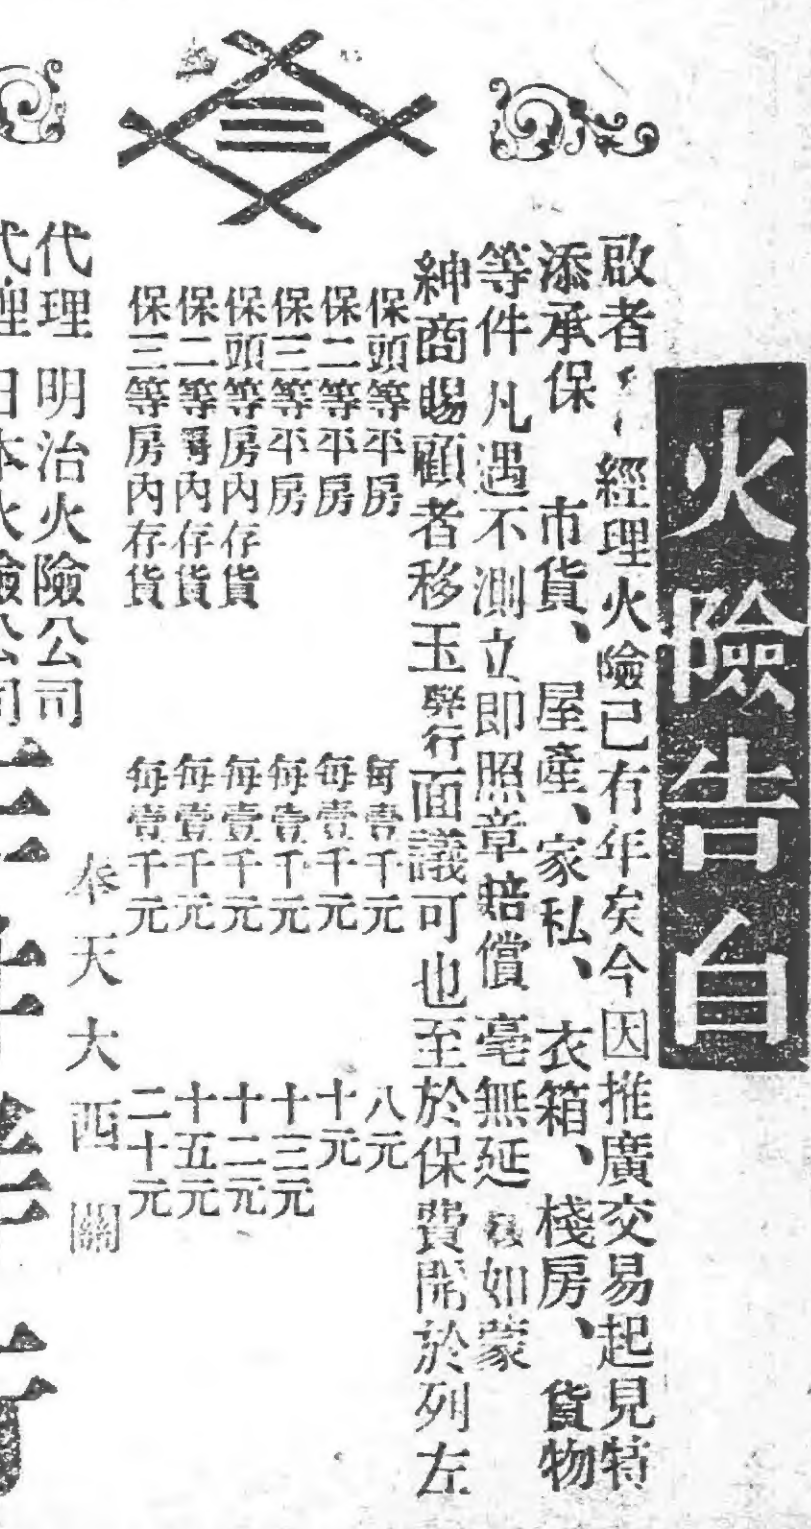 火險告白
啟者 經理火險已有年矣今因推廣交易起見特
添承保 市貨、屋產、家私、衣箱、棧房、貨物
等件凡遇不測立即照章賠償毫無延 如蒙
紳商賜顧者移玉 行面議可也至於保費開於列左
保頭等平房 每壹千元 八元
保二等平房 每壹千元 十元
保三等平房 每壹千元 十三元
保頭等房內存貨 每壹千元 十二元
保二等 內存貨 每壹千元 十五元
保三等房內存貨 每壹千元 二十元
奉天大西關
代理 明治火險公司
代理 日本火險公司